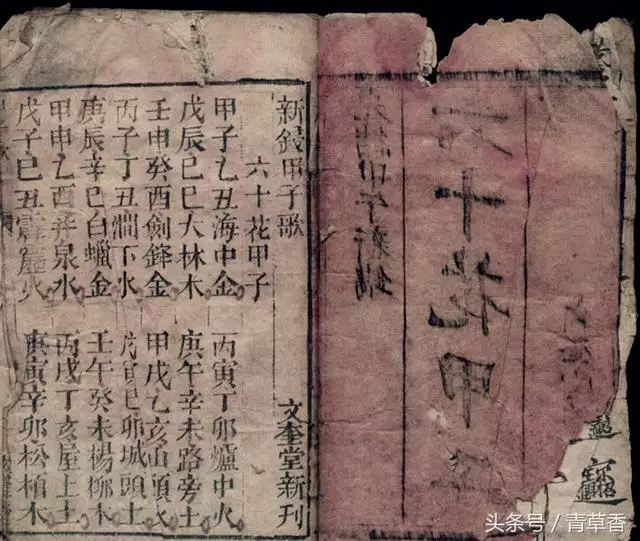 十花甲
甲午新
新鋟甲子歌 文奎堂新刊
六十花甲子
甲子乙丑海中金 丙寅丁卯爐中火
戊辰巳巳大林木 庚午辛未路旁土
壬申癸酉劍鋒金 甲戌乙亥山頭火
丙子丁丑澗下水 戊寅巳卯城頭土
庚辰辛巳白蠟金 壬午癸未楊柳木
甲申乙酉井泉水 丙戌丁亥屋上土
戊子巳丑霹靂火 庚寅辛卯松柏木
头条号 / 青草香